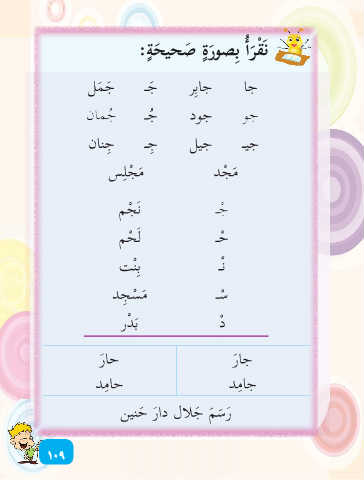 نَقْرَأُ بِصورَةٍ صَحيحَةٍ:
جا جابِر جَـ جَمَل
جو جود جُـ جُمان
جيـ جيل جِـ جِنان
مَجْد مَجْلِس
جْـ نَجْم
حْـ لَحْم
نْـ بِنْت
سْـ مَسْجِد
دْ بَدْر
جارَ حارَ
جامِد حامِد
رَسَمَ جَلال دارَ حَنين
١٠٩